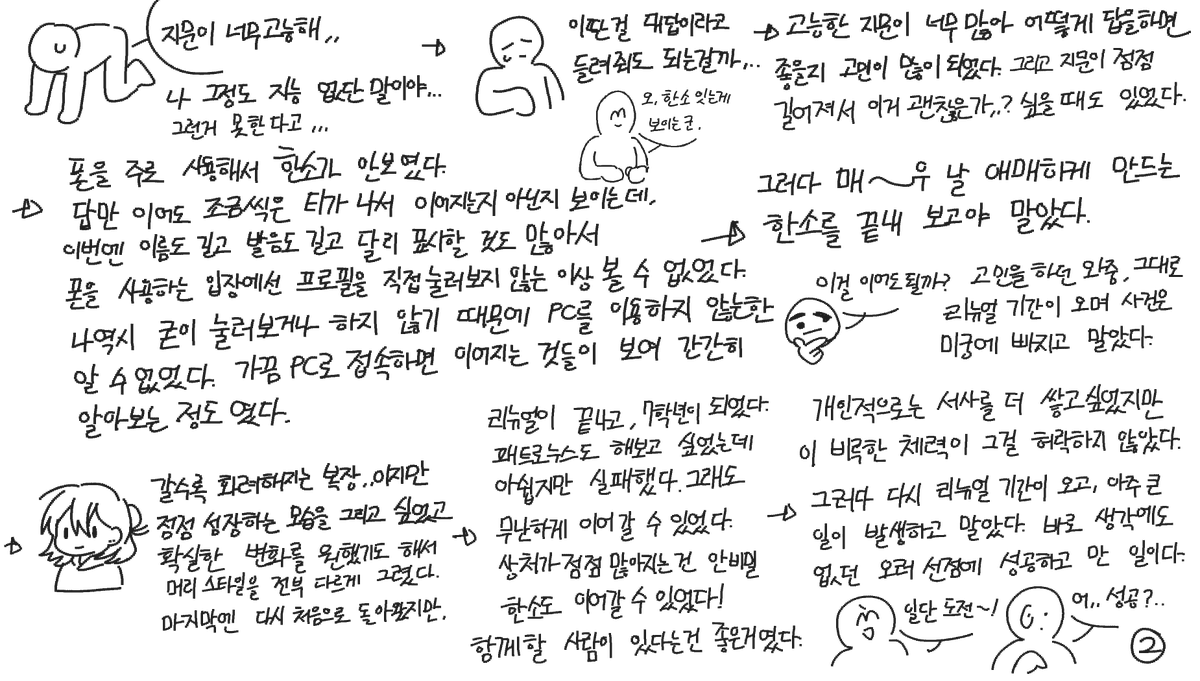 지문이 너무고능해,,
나 그정도 지능 없단 말이야...
그런거 못한다고...
이딴걸 대답이라고
들려줘도 되는걸까,..
오, 한소 잇는게
보이는군.
고능한 지문이 너무 많아 어떻게 답을하면
좋을지 고민이 많이 되었다. 그리고 지문이 점점
길어져서 이거 괜찮은가,,? 싶을 때도 있었다.
폰을 주로 사용해서 한소가 안보였다.
답만 이어도 조금씩은 티가 나서 이어지는지 아닌지 보이는데,
이번엔 이름도 길고 발음도 길고 달리 표시할 것도 많아서
폰을 사용하는 입장에선 프로필을 직접눌러보지 않는 이상 볼 수 없었다.
나역시 굳이 눌러보거나 하지 않기 때문에 PC를 이용하지 않는한
알 수 없었다. 가끔 PC로 접속하면 이어지는 것들이 보여 간간히
알아보는 정도 였다.
그러다 매~우 날 애매하게 만드는
한소를 끝내 보고야 말았다.
이걸 이어도될까? 고민을 하던 와중, 그대로
리뉴얼 기간이 오며 사건은
미궁에 빠지고 말았다.
갈수록 화려해지는 복장,,이지만
점점 성장하는 모습을 그리고 싶었고
확실한 변화를 원했기도 해서
머리 스타일을 전부 다르게 그렸다.
마지막엔 다시 처음으로 돌아왔지만.
리뉴얼이 끝나고, 7학년이 되었다.
패트로누스도 해보고 싶었는데
아쉽지만 실패했다. 그래도
무난하게 이어갈 수 있었다.
상처가 점점 많아지는건 안비밀
한소도 이어갈 수 있었다!
함께할 사람이 있다는건 좋은거였다.
개인적으로는 서사를 더 쌓고싶었지만
이 비루한 체력이 그걸 허락하지 않았다.
그러다 다시 리뉴얼 기간이 오고, 아주 큰
일이 발생하고 말았다. 바로 생각에도
없던 오러 선점에 성공하고 만 일이다.
일단 도전~!
어,, 성공?..
②